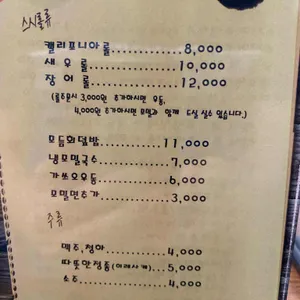 스시롤류
캘리포니아롤..........8,000
새우롤..........10,000
장어롤..........12,000
(롤주문시 3,000원 추가하시면 우동,
4,000원 추가하시면 모밀과 함께 드실 수 있습니다.)
모듬회덮밥..........11,000
냉모밀국수..........7,000
가쓰오우동..........6,000
모밀면추가..........3,000
주류
맥주,청하..........4,000
따뜻한정종(히레사케)...5,000
소주..........4,000